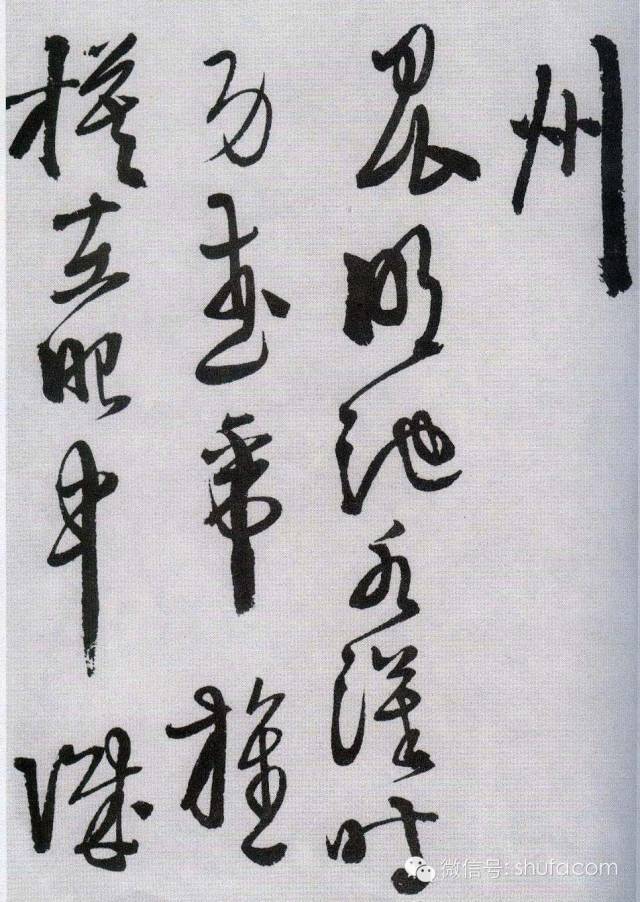 州
昆明池水漢時
功武帝旌
旗在眼中織
微信号: shufacom